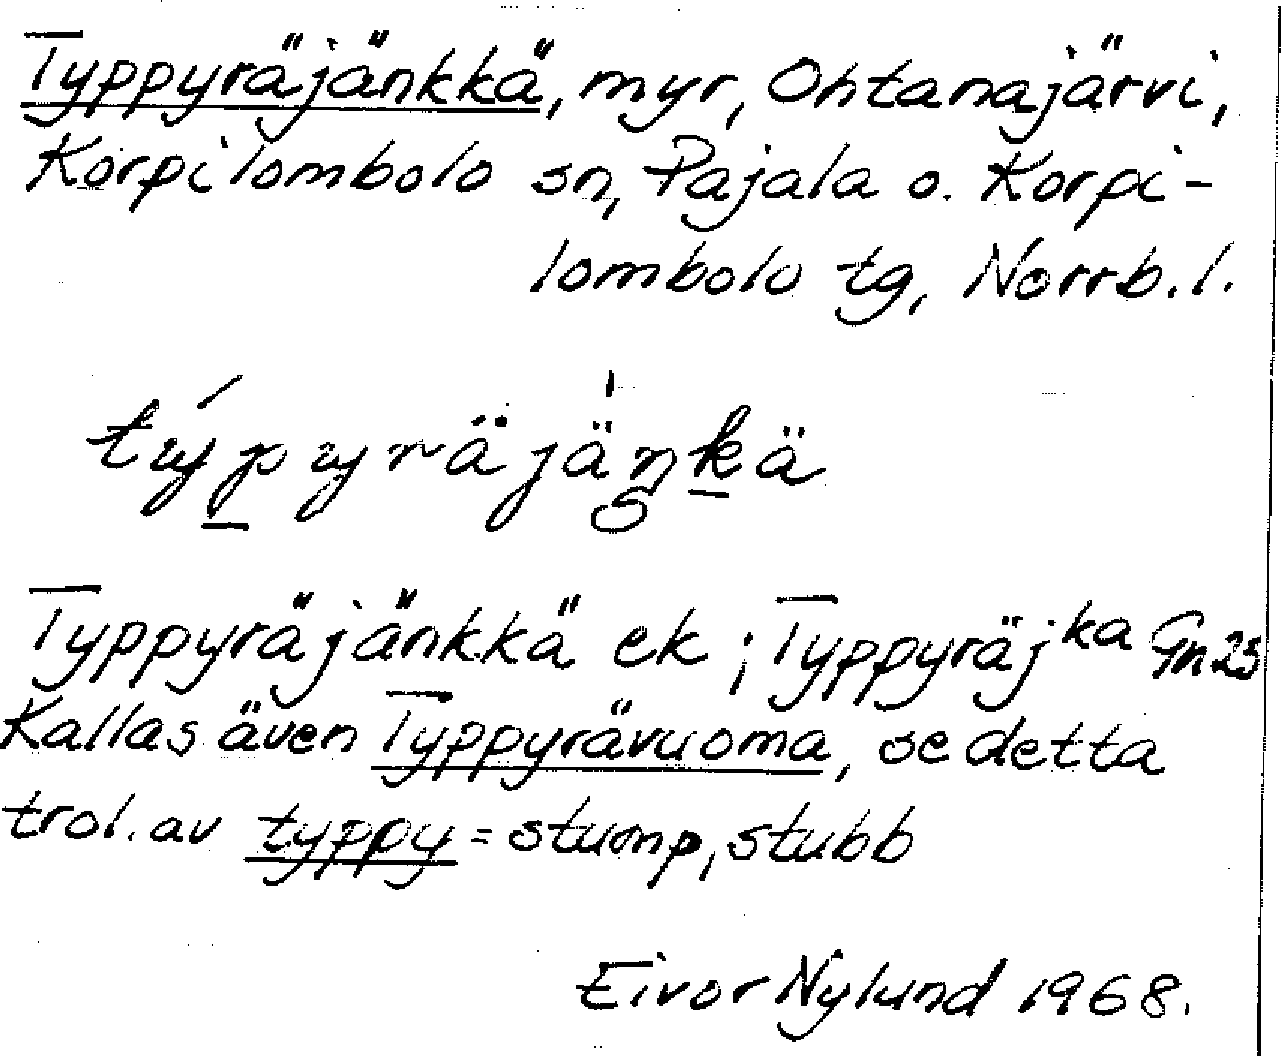 Typpyräjänkkä, myr, Ohtanajärvi,
Korpilombolo sn, Pajala o. Korpi-
lombolo tg, Norrb. l.
týpyräjäŋkä
Typpyräjänkkä ek; Typpyräjka Gn 25
Kallas även Typpyrävuoma, se detta
trol. av typpy = stump, stubb
Eivor Nylund 1968.